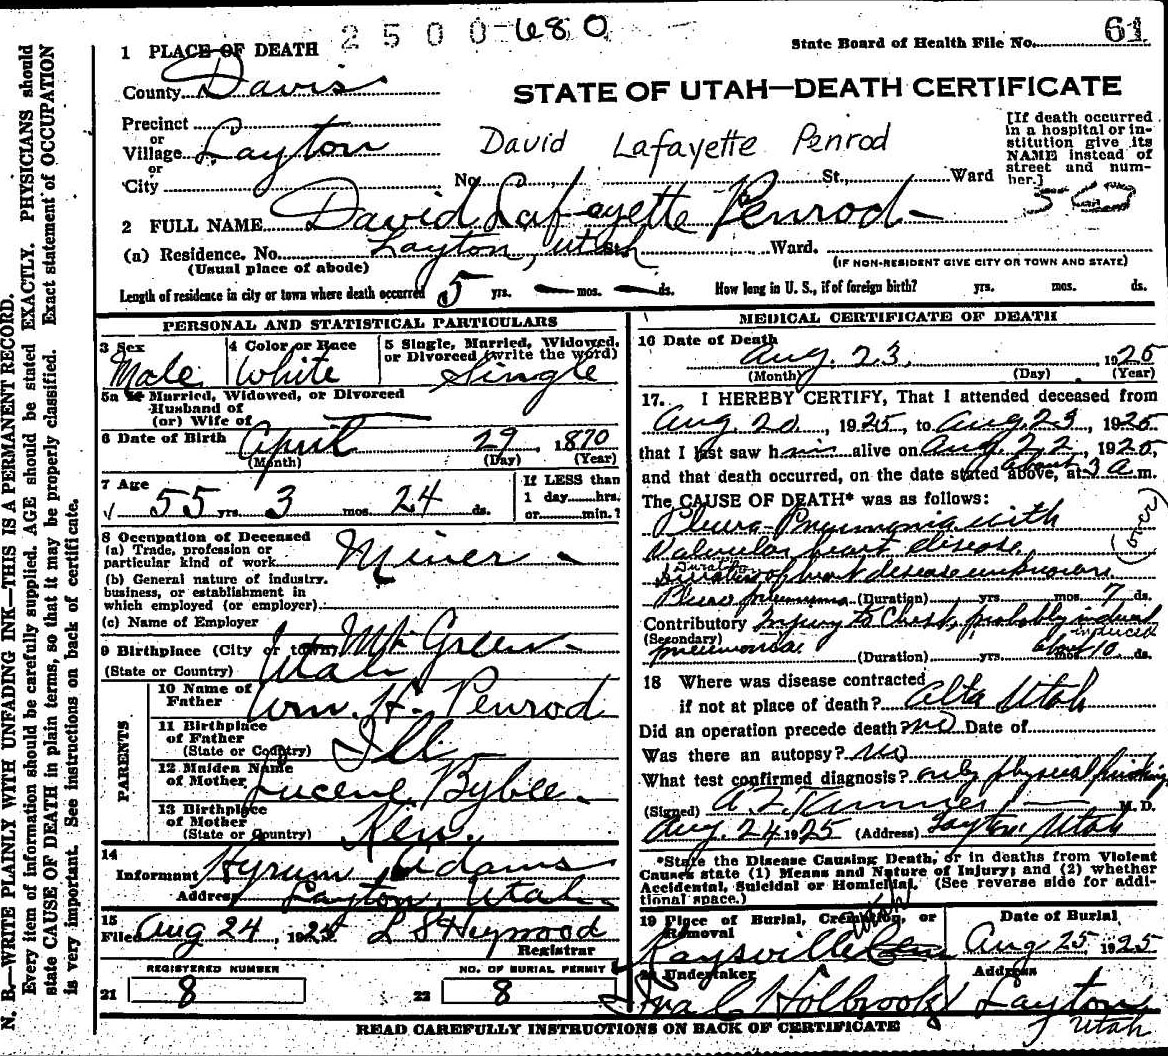 2500-680
61
State Board of Health File No.
1 PLACE OF DEATH
County Davis
STATE OF UTAH—DEATH CERTIFICATE
Precinct
or
Village Layton
or
City
David Lafayette Penrod
No. St., Ward
[If death occurred
in a hospital or in-
stitution give its
NAME instead of
street and num-
ber.]
2 FULL NAME David Lafayette Penrod
(a) Residence. No. Layton, Utah St. Ward.
(Usual place of abode)
(IF NON-RESIDENT GIVE CITY OR TOWN AND STATE)
Length of residence in city or town where death occurred 5 yrs. — mos. — ds. How long in U. S., if of foreign birth? yrs. mos. ds.
PERSONAL AND STATISTICAL PARTICULARS
3 Sex
Male
4 Color or Race
White
5 Single, Married, Widowed,
or Divorced (write the word)
Single
5a If Married, Widowed, or Divorced
Husband of
(or) Wife of
6 Date of Birth April 29, 1870
(Month) (Day) (Year)
7 Age
55 yrs. 3 mos. 24 ds.
If LESS than
1 day......hrs.
or......min.?
8 Occupation of Deceased
(a) Trade, profession or
particular kind of work Miner
(b) General nature of industry,
business, or establishment in
which employed (or employer)
(c) Name of Employer
9 Birthplace (City or town) Mt Green
(State or Country) Utah
PARENTS
10 Name of
Father Wm. H. Penrod
11 Birthplace
of Father
(State or Country) Ill
12 Maiden Name
of Mother Lucene Bybee
13 Birthplace
of Mother
(State or Country) Ken.
14
Informant Hyrum Adams
Address Layton, Utah
15
Filed Aug 24, 1925 L S Heywood
Registrar
REGISTERED NUMBER
21 8
NO. OF BURIAL PERMIT
22 8
MEDICAL CERTIFICATE OF DEATH
16 Date of Death
Aug. 23, 1925
(Month) (Day) (Year)
17. I HEREBY CERTIFY, That I attended deceased from
Aug. 20, 1925, to Aug. 23, 1925
that I last saw him alive on Aug. 22, 1925,
and that death occurred, on the date stated above, at about 3 a.m.
The CAUSE OF DEATH* was as follows:
Pleuro-Pneumonia with
Valvular heart disease
(over)
Duration of heart disease unknown
Pleuro pneumonia (Duration) yrs. mos. 7 ds.
Contributory Injury to Chest, probably induced
(Secondary)
pneumonia (Duration) yrs. mos. about 10 ds.
18 Where was disease contracted
if not at place of death? Alta Utah
Did an operation precede death? no Date of
Was there an autopsy? no
What test confirmed diagnosis? only physical finding
(Signed) M. D.
Aug. 24 1925 (Address) Layton Utah
*State the Disease Causing Death, or in deaths from Violent
Causes state (1) Means and Nature of Injury; and (2) whether
Accidental, Suicidal or Homicidal. (See reverse side for addi-
tional space.)
19 Place of Burial, Cremation, or
Removal
Kaysville Cem
Utah
Date of Burial
Aug 25, 1925
20 Undertaker
Ira C Holbrook
Address
Layton
Utah
READ CAREFULLY INSTRUCTIONS ON BACK OF CERTIFICATE
N. B.—WRITE PLAINLY WITH UNFADING INK—THIS IS A PERMANENT RECORD.
Every item of information should be carefully supplied. AGE should be stated EXACTLY. PHYSICIANS should
state CAUSE OF DEATH in plain terms, so that it may be properly classified. Exact statement of OCCUPATION
is very important. See instructions on back of certificate.